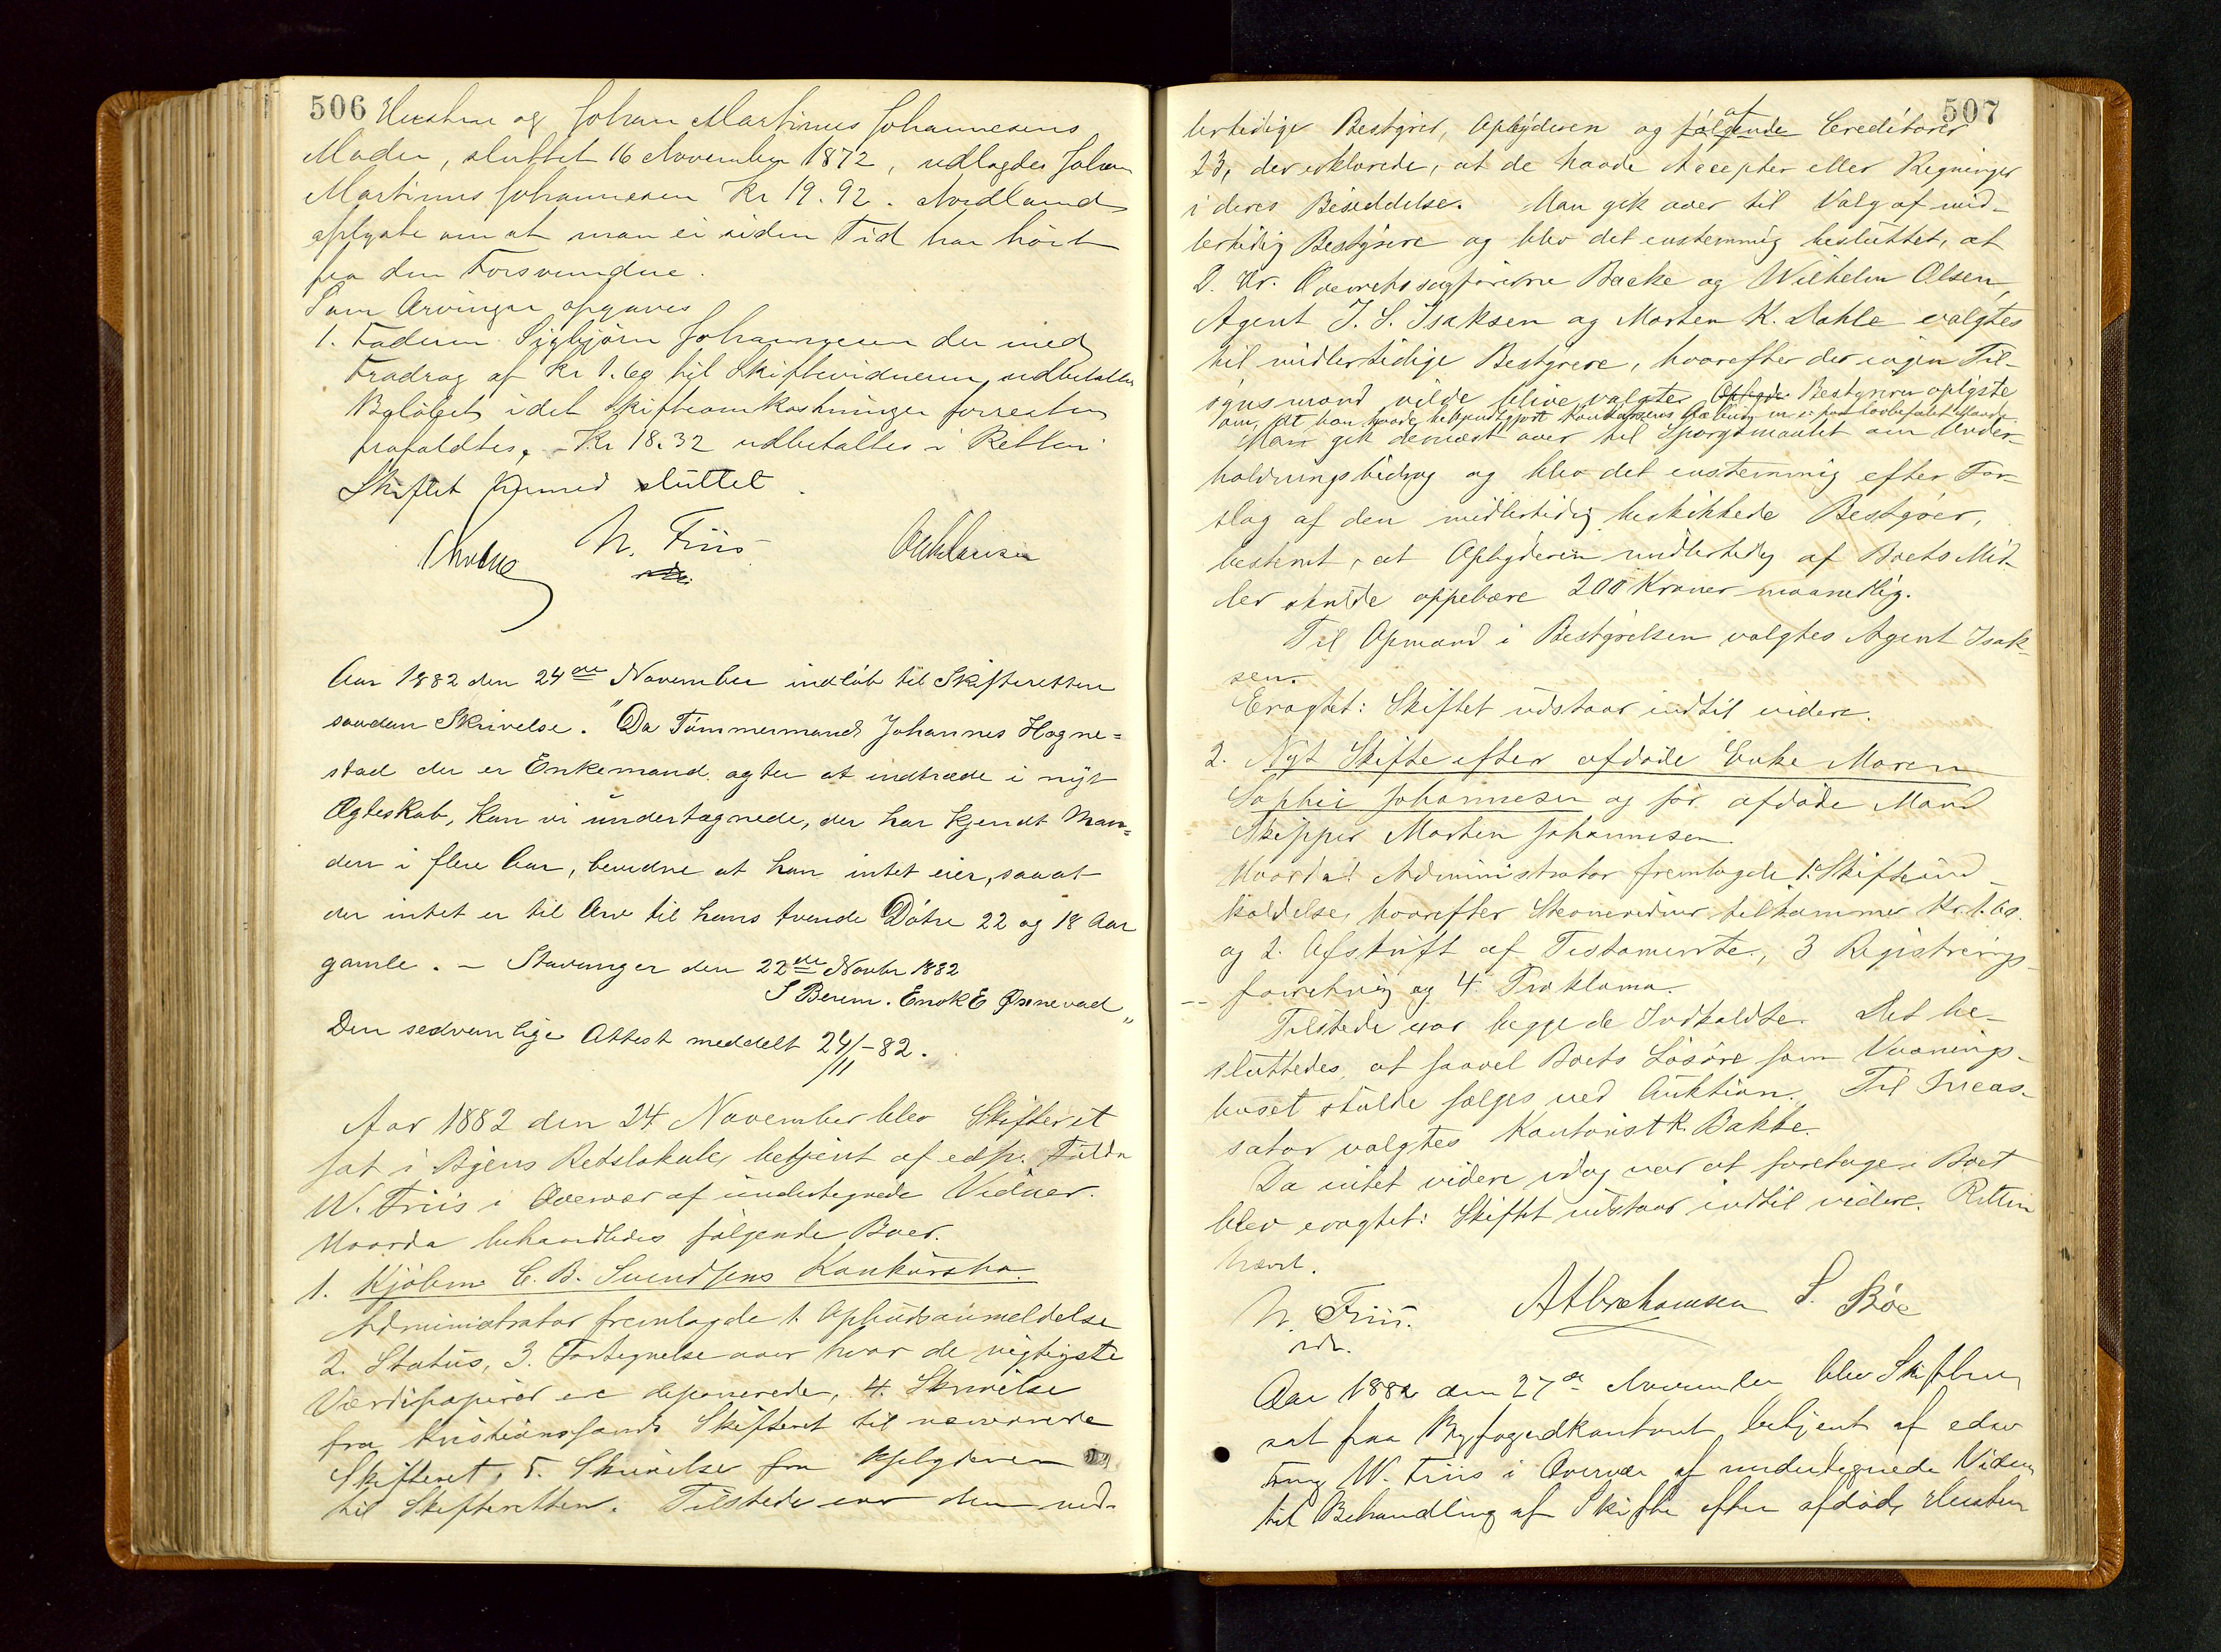 506 Hustru og Johan Martinus Johannesens
Moder, sluttet 16 November 1872, udlagdes Johan
Martinus Johannesen Kr 19.92. Nordland
oplyste om at man ei siden Tid har hørt
fra den Forsvundne.
Som Arvinger opgaves
1. Faderen Sigbjørn Johannesen der med
Fradrag af Kr 1.60 til Skiftevidnerne udbetaltes
Beløbet idet Skifteomkostninger forresten
frafaldtes. - Kr 18.32 udbetaltes i Retten
Skiftet hermed sluttet.
W. Friis
Aar 1882 den 24de November indløb til Skifteretten
saadan Skrivelse. "Da Tømmermand Johannes Hogne=
stad der er Enkemand agter at indtræde i nyt
Ægteskab, kan vi undertegnede, der har kjendt Man=
den i flere Aar, bevidne at han intet eier, saaat
der intet er til Arv til hans tvende Døtre 22 og 18 Aar
gamle. - Stavanger den 22de Novbr 1882
S Berem. Enok E Ønnevad"
Den sedvanlige Attest meddelt 24/11-82.
Aar 1882 den 24 November blev Skifteret
sat i Byens Retslokale, betjent af edsv. Fuldm
W. Friis i Overvær af undertegnede Vidner.
Hvorda behandledes følgende Boer.
1. Kjøbm. C. B. Svendsens Konkursbo.
Administrator fremlagde 1. Opbudsanmeldelse
2. Status, 3. Fortegnelse over hvor de vigtigste
Værdipapirer ere deponerede, 4. Skrivelse
fra Kristianssands Skifteret til nærværende
Skifteret, 5. Skrivelse fra Opbyderen
til Skifteretten. Tilstede var den mid-
507
lertidige Bestyrer, Opbyderen og følgende af Creditorer
23, der erklærede, at de havde Accepter eller Regninger
i deres Besiddelse. Man gik over til Valg af mid-
lertidig Bestyrere og blev det enstemmig besluttet, at
D. Hr. Overretssagførerne Backe og Wilhelm Olsen,
Agent J. S. Isaksen og Morten K. Dahle valgtes
til midlertidige Bestyrere, hvorefter der ingen Til-
synsmand vilde blive valgte. Opbyde Bestyreren oplyste
om, at han havde bekjendtgjort Konkursens Aabning m. v. paa lovbefalet Maade
Man gik dernæst over til Spørgsmaalet om Under-
holdningsbidrag og blev det enstemmig efter For-
slag af den midlertidig beskikkede Bestyrer,
bestemt, at Opbyderen midlertidig af Boets Mid-
ler skulde oppebære 200 Kroner maanedlig.
Til Opmand i Bestyrelsen valgtes Agent Isak-
sen.
Eragtet: Skiftet udstaar indtil videre.
2. Nyt Skifte efter afdøde Enke Maren
Sophie Johannesen og før afdøde Mand
Skipper Morten Johannesen.
Hvorda Administrator fremlagde 1. Skifteind-
kaldelse, hvorefter Stevnevidner tilkommer Kr. 1.60.
og 2. Afskrift af Testamente, 3 Registrerings-
forretning og 4. Proklama.
Tilstede var begge de Indkaldte. Det be-
sluttedes, at saavel Boets Løsøre som Vaanings-
huset skulde sælges ved Auktion. Til Incas-
sator valgtes Kontorist K. Bakke.
Da intet videre idag var at foretage i Boet
blev eragtet: Skiftet udstaar indtil videre. Retten
hævet.
W. Friis. A Abrahamsen S. Bøe
Aar 1882 den 27de November blev Skifteret
sat paa Byfogedkontoret betjent af edsv
Fmg W. Friis i Overvær af undertegnede Vidner
til Behandling af Skifte efter afdøde Hustru